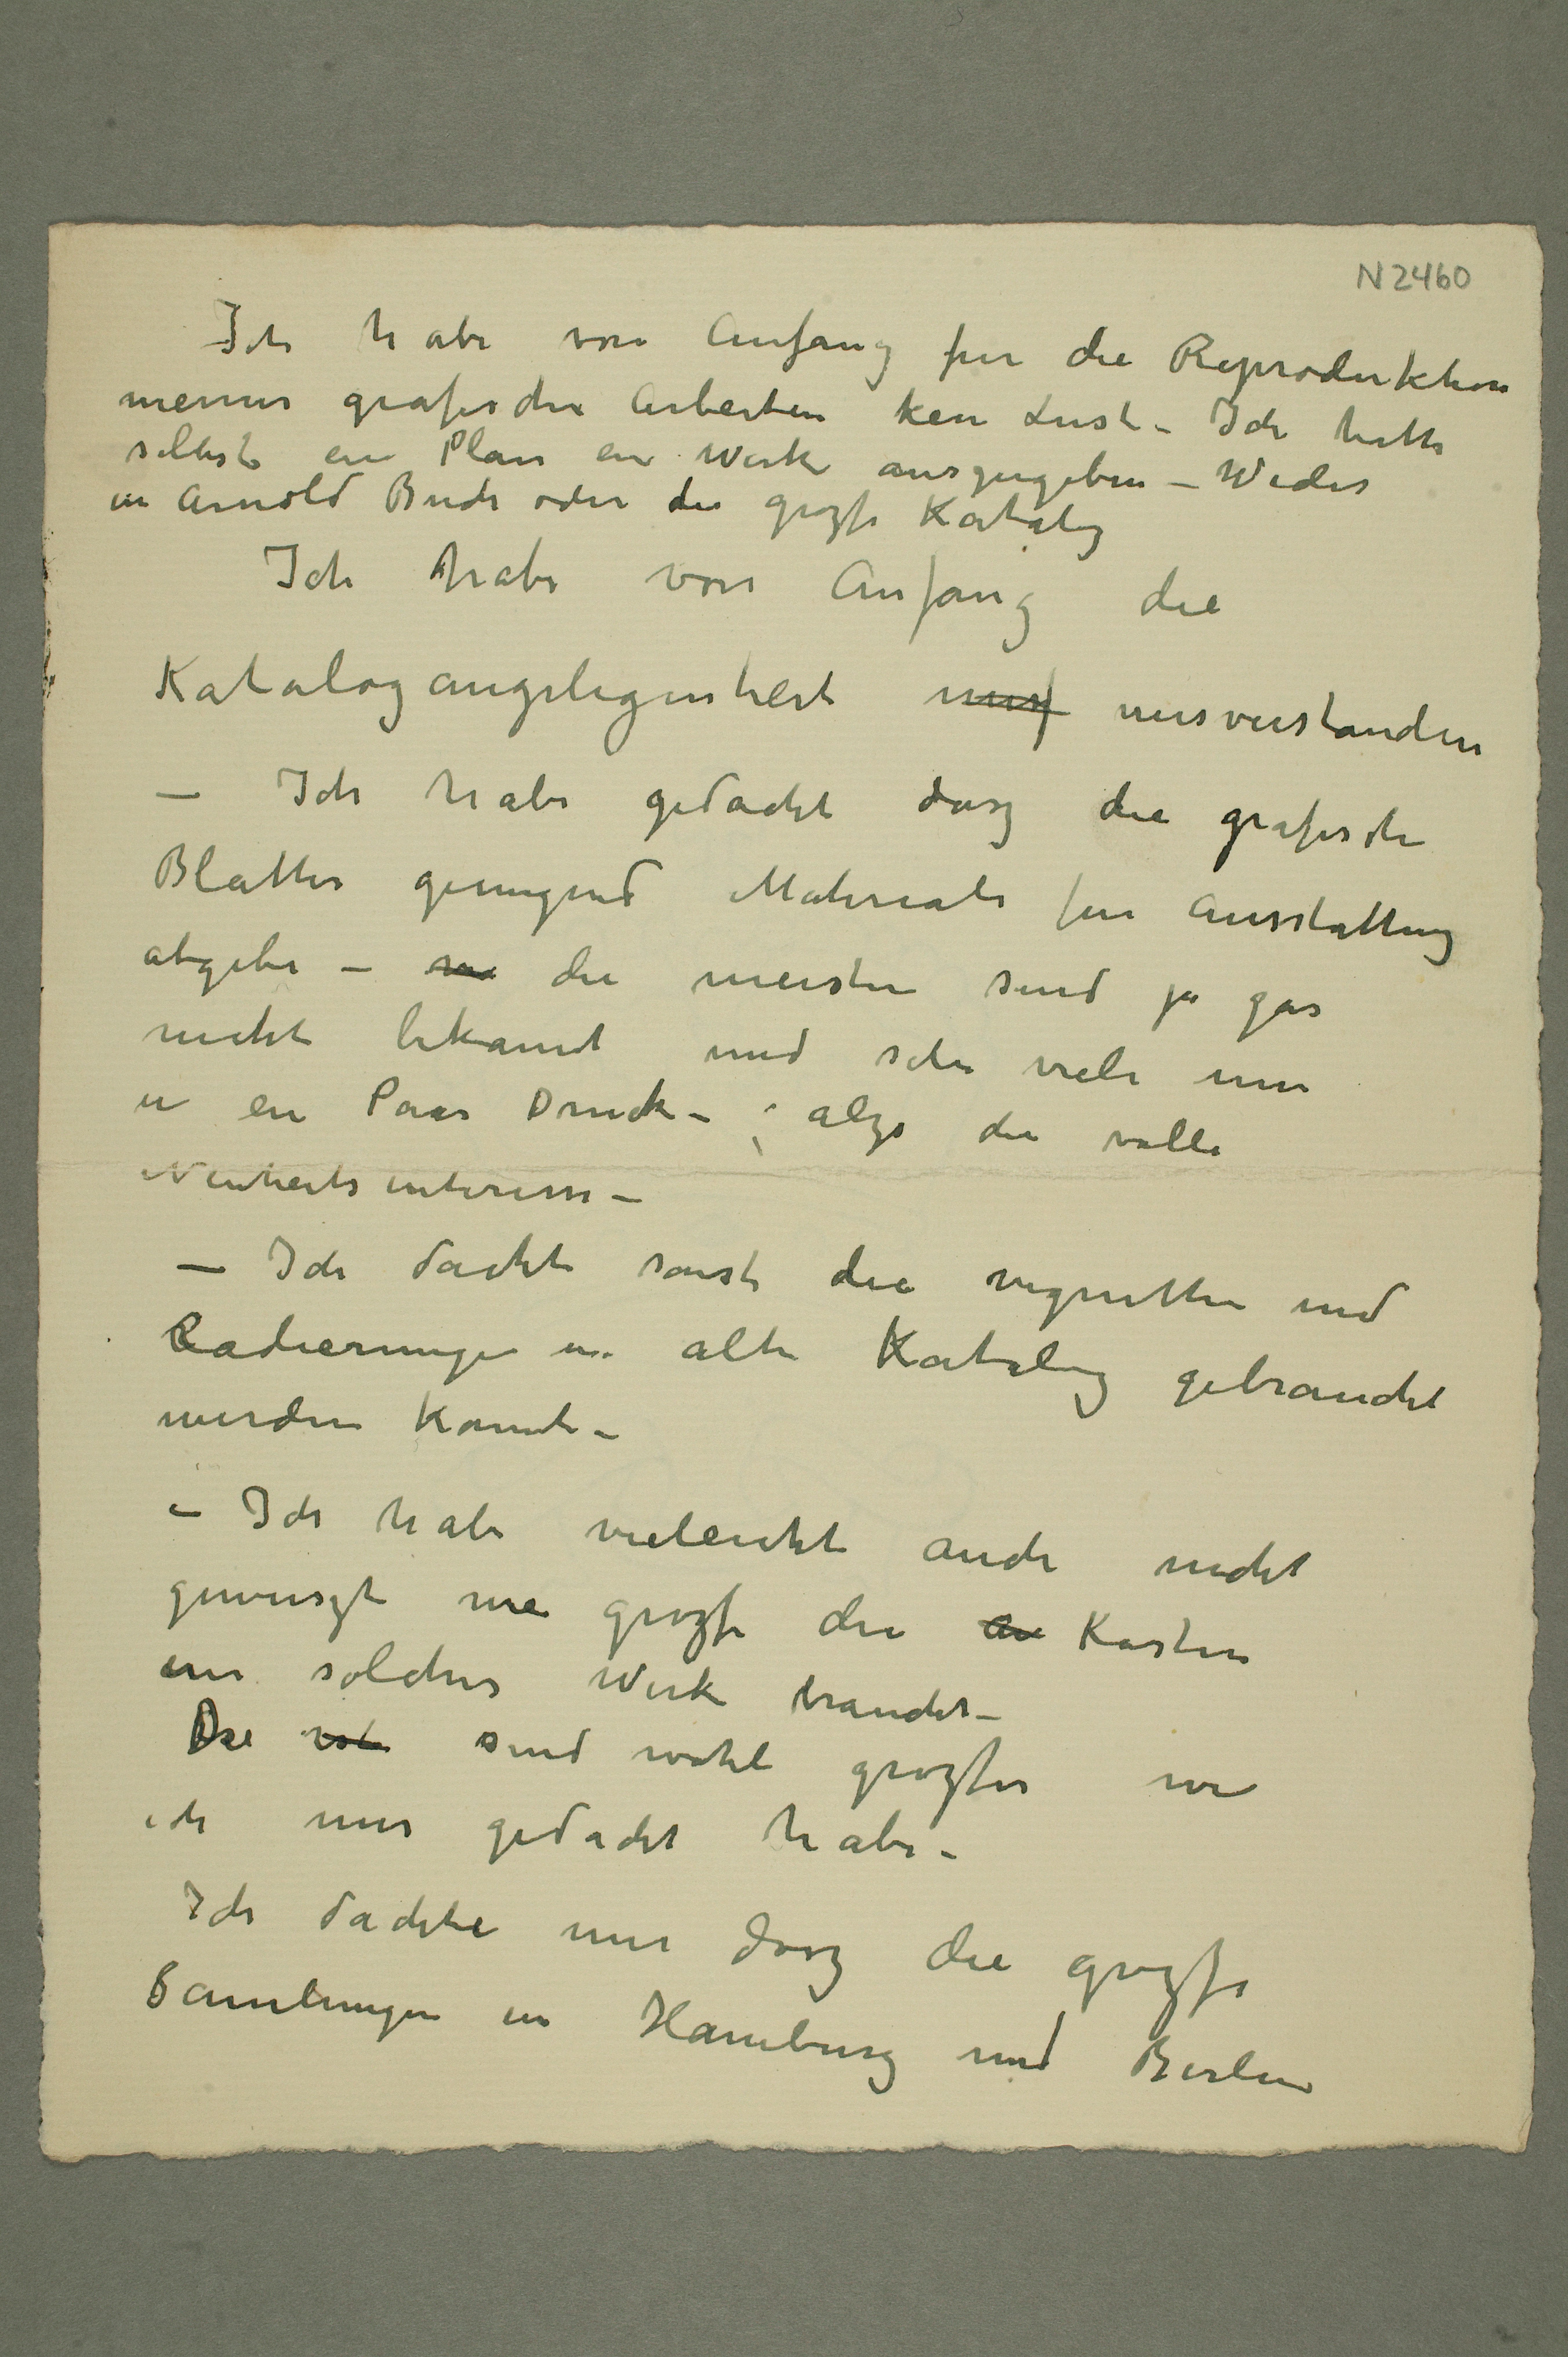 N 2460
Ich habe von Anfang für die Reproduktion
meiner grafischen Arbeiten kein Lust – Ich hatte
selbst ein Plan ein Werk auszugeben – Weder
in Arnold Buch oder die grozse Katalog
Ich habe von Anfang die
Katalogangelegenheit misverstanden
– Ich habe gedacht dasz die grafische
Blatter genugend Materiale fur Ausstattung
abgebe – die meisten sind ja gar
nicht bekannt und sehr viele nur
in ein Paar Druck – ; alzo die volle
Neuheitsinteresse –
– Ich dachte sonst die vignetten und
Radierungen in alte Katalog gebraucht
werden konnte –
– Ich habe vieleicht auch nicht
gewuszt wie grozse die Kosten
ein solches Werk braucht –
Die sind wohl grozser wie
ich mir gedacht habe –
Ich dachte mir dasz die grozse
Samlungen in Hamburg und Berlin